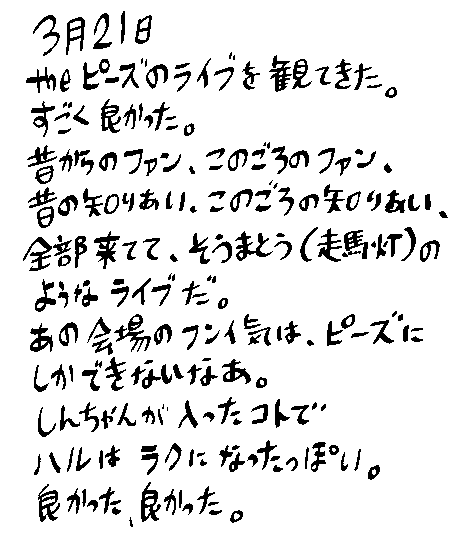 3月21日
theピーズのライブを観てきた。
すごく良かった。
昔からのファン、このごろのファン、
昔の知りあい、このごろの知りあい、
全部来てて、そうまとう(走馬灯)の
ようなライブだ。
あの会場のフンイ気は、ピーズに
しかできないなあ。
しんちゃんが入ったコトで
ハルはラクになったっぽい。
良かった、良かった。